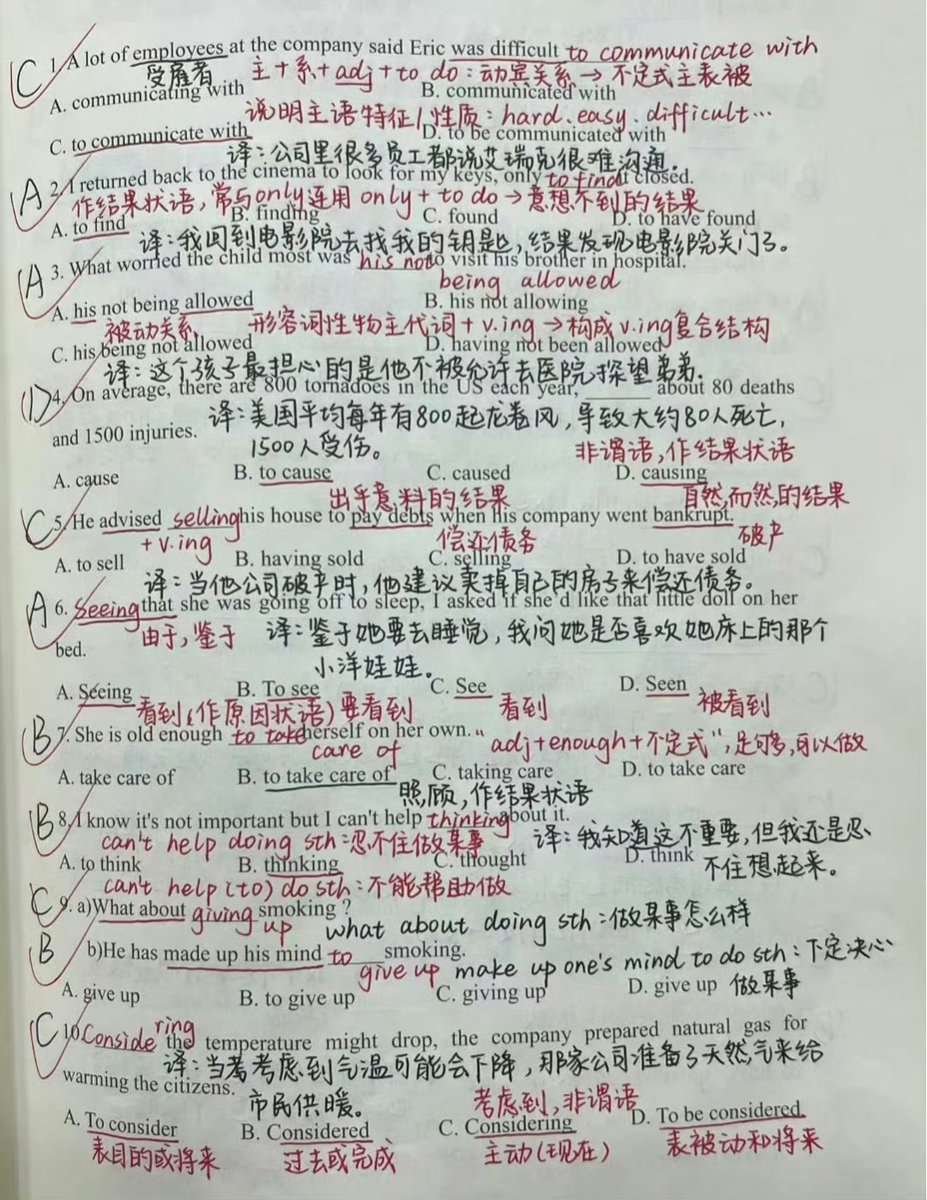 C 1. A lot of employees at the company said Eric was difficult to communicate with
受雇者 主+系+adj+to do：动宾关系→不定式主表被
A. communicating with B. communicated with
说明主语特征/性质：hard.easy.difficult…
C. to communicate with D. to be communicated with
译：公司里很多员工都说艾瑞克很难沟通.
A 2. I returned back to the cinema to look for my keys, only to find it closed.
作结果状语，常与only连用 only+to do→意想不到的结果
A. to find B. finding C. found D. to have found
译：我回到电影院去找我的钥匙，结果发现电影院关门了。
A 3. What worried the child most was his not to visit his brother in hospital.
being allowed
A. his not being allowed B. his not allowing
被动关系 形容词性物主代词+v.ing→构成v.ing复合结构
C. his being not allowed D. having not been allowed
译：这个孩子最担心的是他不被允许去医院探望弟弟.
D 4. On average, there are 800 tornadoes in the US each year, ______ about 80 deaths
译：美国平均每年有800起龙卷风，导致大约80人死亡，
and 1500 injuries.
1500人受伤。 非谓语，作结果状语
A. cause B. to cause C. caused D. causing
出乎意料的结果 自然而然的结果
C 5. He advised selling his house to pay debts when his company went bankrupt.
+v.ing 偿还债务 破产
A. to sell B. having sold C. selling D. to have sold
译：当他公司破产时，他建议卖掉自己的房子来偿还债务。
A 6. Seeing that she was going off to sleep, I asked if she'd like that little doll on her
由于，鉴于 译：鉴于她要去睡觉，我问她是否喜欢她床上的那个
bed.
小洋娃娃。
A. Seeing B. To see C. See D. Seen
看到(作原因状语) 要看到 看到 被看到
B 7. She is old enough to take herself on her own.
care of "adj+enough+不定式"，足够，可以做
A. take care of B. to take care of C. taking care D. to take care
照顾，作结果状语
B 8. I know it's not important but I can't help thinking about it.
can't help doing sth：忍不住做某事 译：我知道这不重要，但我还是忍
A. to think B. thinking C. thought D. think
不住想起来。
can't help (to) do sth：不能帮助做
C 9. a)What about giving smoking ?
up what about doing sth：做某事怎么样
B b)He has made up his mind to smoking.
give up make up one's mind to do sth：下定决心
A. give up B. to give up C. giving up D. give up 做某事
C 10. Considering the temperature might drop, the company prepared natural gas for
译：当考虑到气温可能会下降，那家公司准备了天然气来给
warming the citizens.
市民供暖。 考虑到，非谓语
A. To consider B. Considered C. Considering D. To be considered
表目的或将来 过去或完成 主动(现在) 表被动和将来